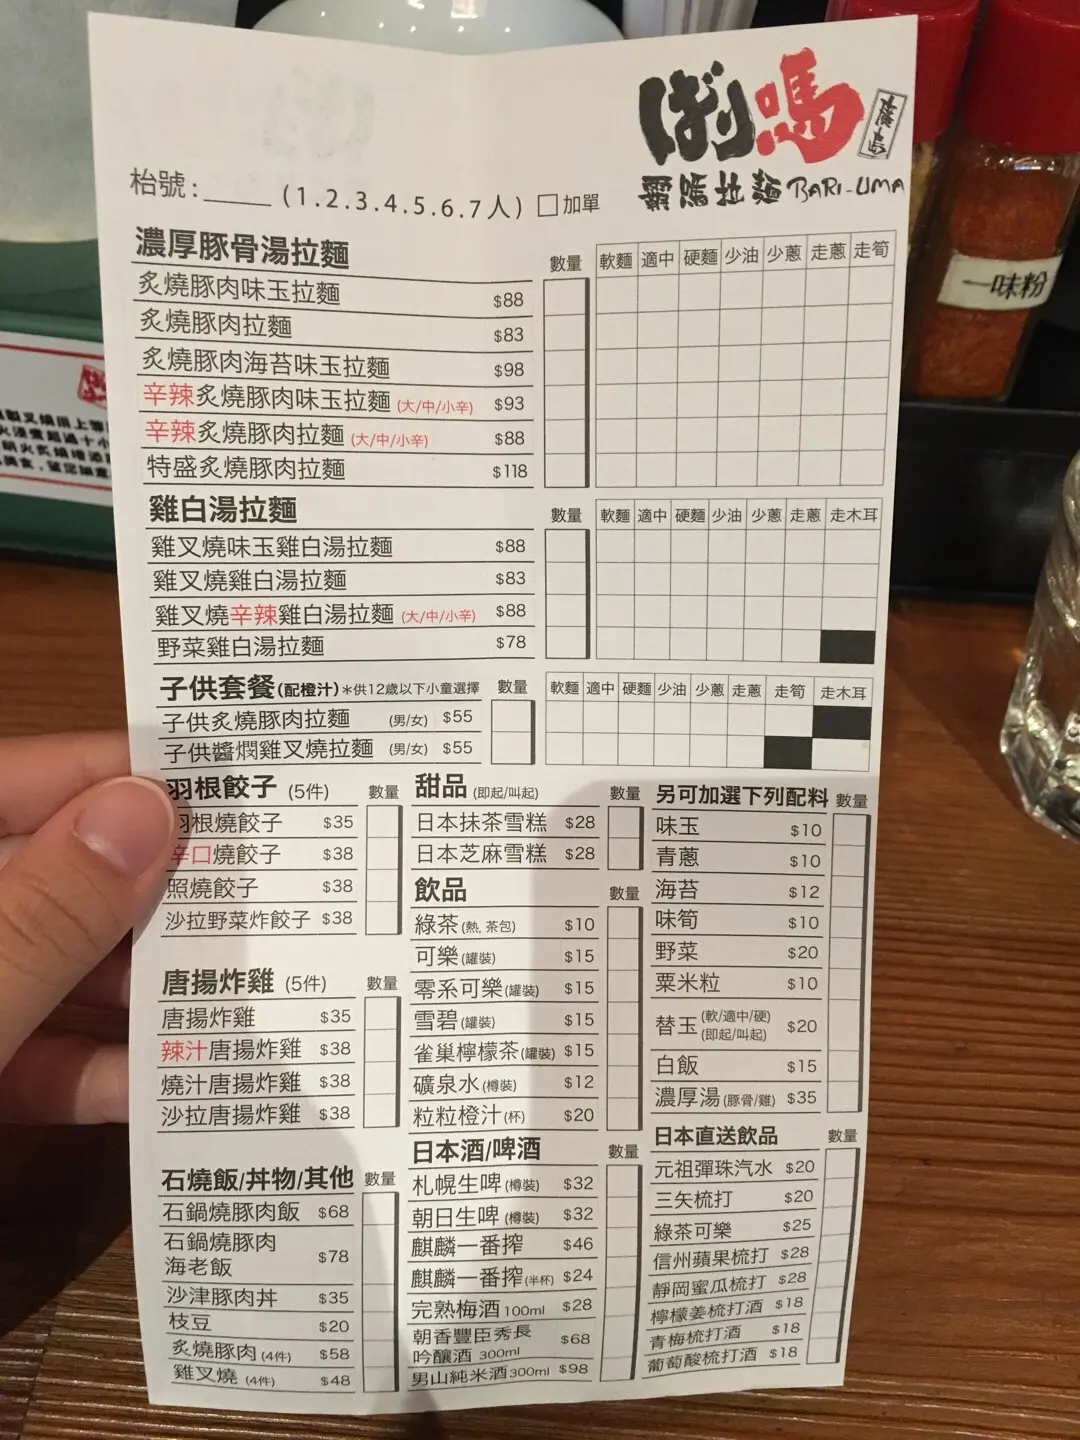 ばり嗎
霸嗎拉麵 BARI-UMA
枱號:_____ (1.2.3.4.5.6.7人) □加單
濃厚豚骨湯拉麵 數量 軟麵 適中 硬麵 少油 少蔥 走蔥 走筍
炙燒豚肉味玉拉麵 $88
炙燒豚肉拉麵 $83
炙燒豚肉海苔味玉拉麵 $98
辛辣炙燒豚肉味玉拉麵 (大/中/小辛) $93
辛辣炙燒豚肉拉麵 (大/中/小辛) $88
特盛炙燒豚肉拉麵 $118
雞白湯拉麵 數量 軟麵 適中 硬麵 少油 少蔥 走蔥 走木耳
雞叉燒味玉雞白湯拉麵 $88
雞叉燒雞白湯拉麵 $83
雞叉燒辛辣雞白湯拉麵 (大/中/小辛) $88
野菜雞白湯拉麵 $78
子供套餐(配橙汁)*供12歲以下小童選擇 數量 軟麵 適中 硬麵 少油 少蔥 走蔥 走筍 走木耳
子供炙燒豚肉拉麵 (男/女) $55
子供醬燜雞叉燒拉麵 (男/女) $55
羽根餃子 (5件) 數量
羽根燒餃子 $35
辛口燒餃子 $38
照燒餃子 $38
沙拉野菜炸餃子 $38
唐揚炸雞 (5件) 數量
唐揚炸雞 $35
辣汁唐揚炸雞 $38
燒汁唐揚炸雞 $38
沙拉唐揚炸雞 $38
石燒飯/丼物/其他 數量
石鍋燒豚肉飯 $68
石鍋燒豚肉
海老飯 $78
沙津豚肉丼 $35
枝豆 $20
炙燒豚肉 (4件) $58
雞叉燒 (4件) $48
甜品 (即起/叫起) 數量
日本抹茶雪糕 $28
日本芝麻雪糕 $28
飲品 數量
綠茶 (熱, 茶包) $10
可樂 (罐裝) $15
零系可樂 (罐裝) $15
雪碧 (罐裝) $15
雀巢檸檬茶 (罐裝) $15
礦泉水 (樽裝) $12
粒粒橙汁 (杯) $20
日本酒/啤酒 數量
札幌生啤 (樽裝) $32
朝日生啤 (樽裝) $32
麒麟一番搾 $46
麒麟一番搾 (半杯) $24
完熟梅酒 100ml $28
朝香豐臣秀長
吟釀酒 300ml $68
男山純米酒 300ml $98
另可加選下列配料 數量
味玉 $10
青蔥 $10
海苔 $12
味筍 $10
野菜 $20
粟米粒 $10
替玉 (軟/適中/硬) (即起/叫起) $20
白飯 $15
濃厚湯 (豚骨/雞) $35
日本直送飲品 數量
元祖彈珠汽水 $20
三矢梳打 $20
綠茶可樂 $25
信州蘋果梳打 $28
靜岡蜜瓜梳打 $28
檸檬姜梳打酒 $18
青梅梳打酒 $18
葡萄酸梳打酒 $18
一味粉